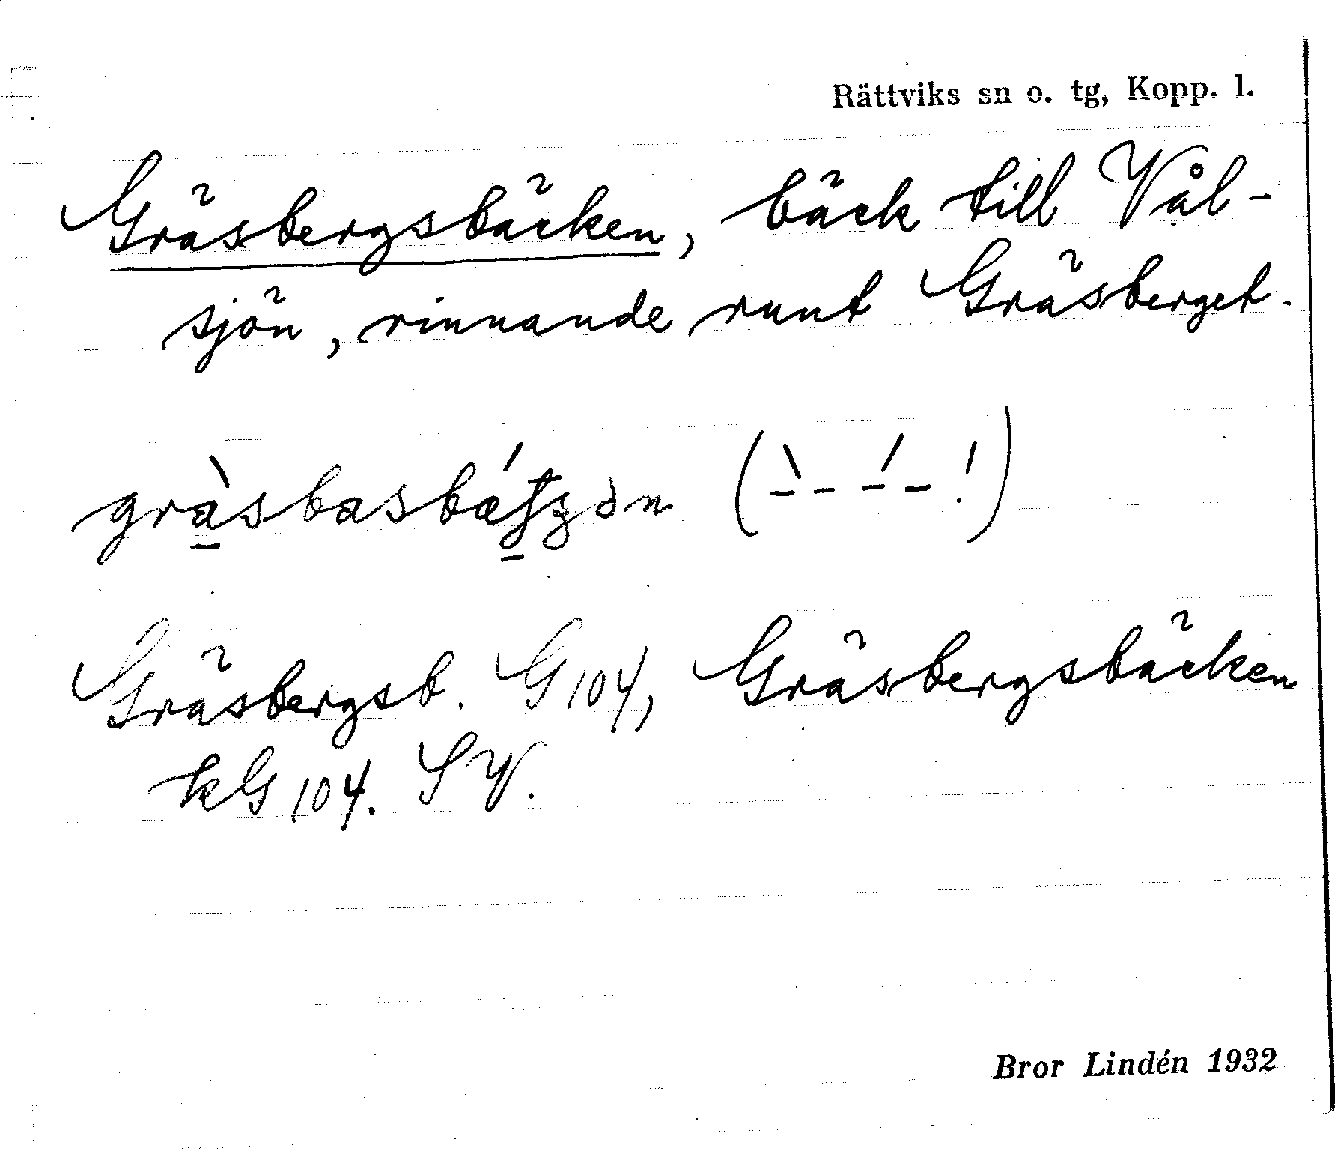 Rättviks sn o. tg, Kopp. l.
Gräsbergsbäcken, bäck till Vål-
sjön, rinnande runt Gräsberget.
Gräsbergsb. G 104, Gräsbergsbäcken
kG 104. SV.
Bror Lindén 1932